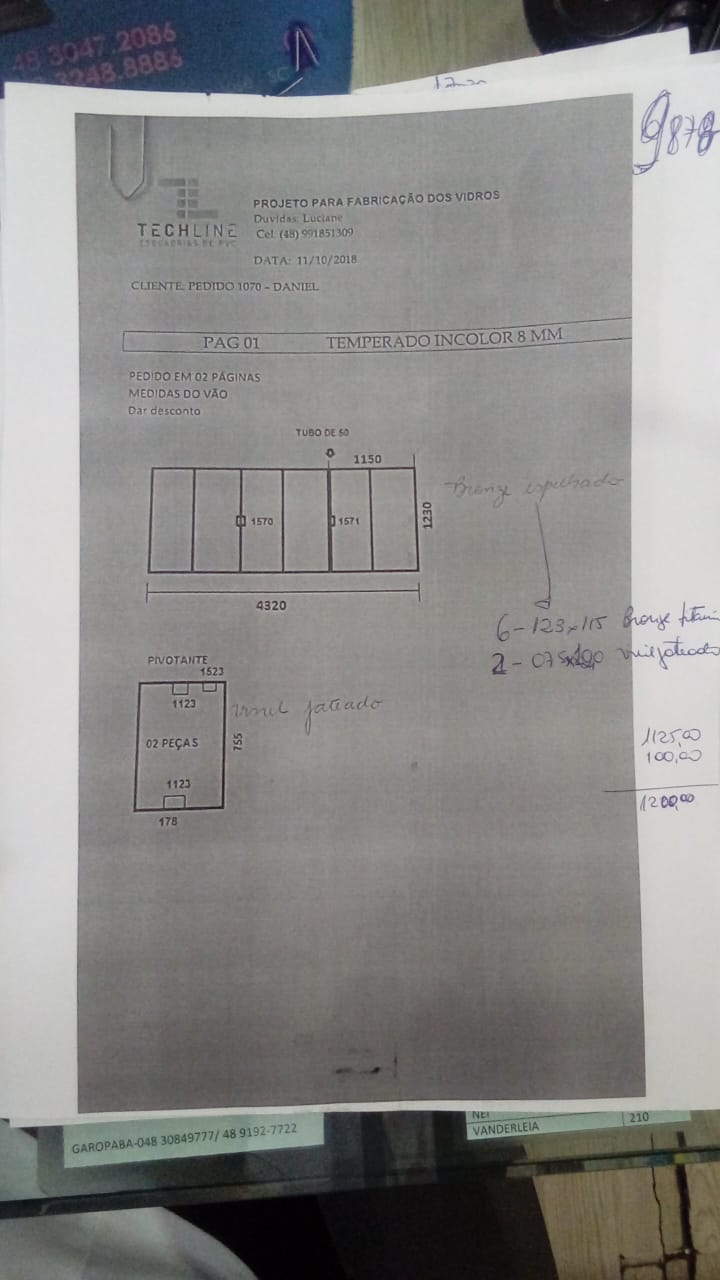 48 3047.2086
3248.8886
9878
TECHLINE
ESQUADRIAS DE PVC
PROJETO PARA FABRICAÇÃO DOS VIDROS
Duvidas: Luciane
Cel: (48) 991851309
DATA: 11/10/2018
CLIENTE: PEDIDO 1070 – DANIEL
PAG 01 TEMPERADO INCOLOR 8 MM
PEDIDO EM 02 PÁGINAS
MEDIDAS DO VÃO
Dar desconto
TUBO DE 50
1150
1570
1571
1230
4320
Bronze espelhado
6 - 123x115 Bronze
2 - 075x vinil jateado
PIVOTANTE
1523
1123
02 PEÇAS
755
1123
178
vinil jateado
1125,00
100,00
1200,00
GAROPABA-048 30849777/ 48 9192-7722
NEI
VANDERLEIA 210